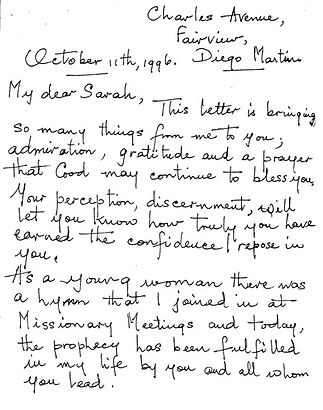 Charles Avenue,
Fairview,
October 11th, 1996. Diego Martin
My dear Sarah,
This letter is bringing
so many things from me to you;
admiration, gratitude and a prayer
that God may continue to bless you.
Your perception, discernment, will
let you know how truly you have
earned the confidence I repose in
you.
As a young woman there was
a hymn that I joined in at
Missionary Meetings and today,
the prophecy has been fulfilled
in my life by you and all whom
you lead.